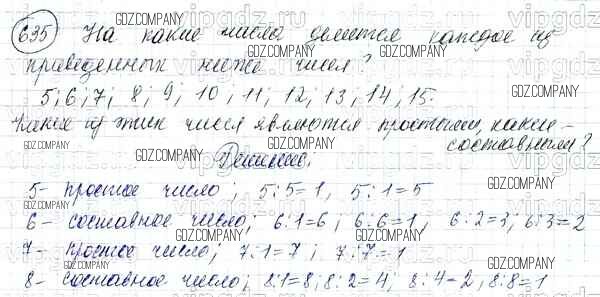 635 На какие числа делится каждое из
приведенных ниже чисел?
5; 6; 7; 8; 9; 10; 11; 12; 13; 14; 15.
Какие из этих чисел являются простыми, какие -
составными?
Решение:
5 - простое число; 5:5=1, 5:1=5
6 - составное число; 6:1=6; 6:6=1, 6:2=3; 6:3=2
7 - простое число; 7:1=7; 7:7=1
8 - составное число; 8:1=8; 8:2=4; 8:4=2, 8:8=1
GDZ.COMPANY
vipgdz